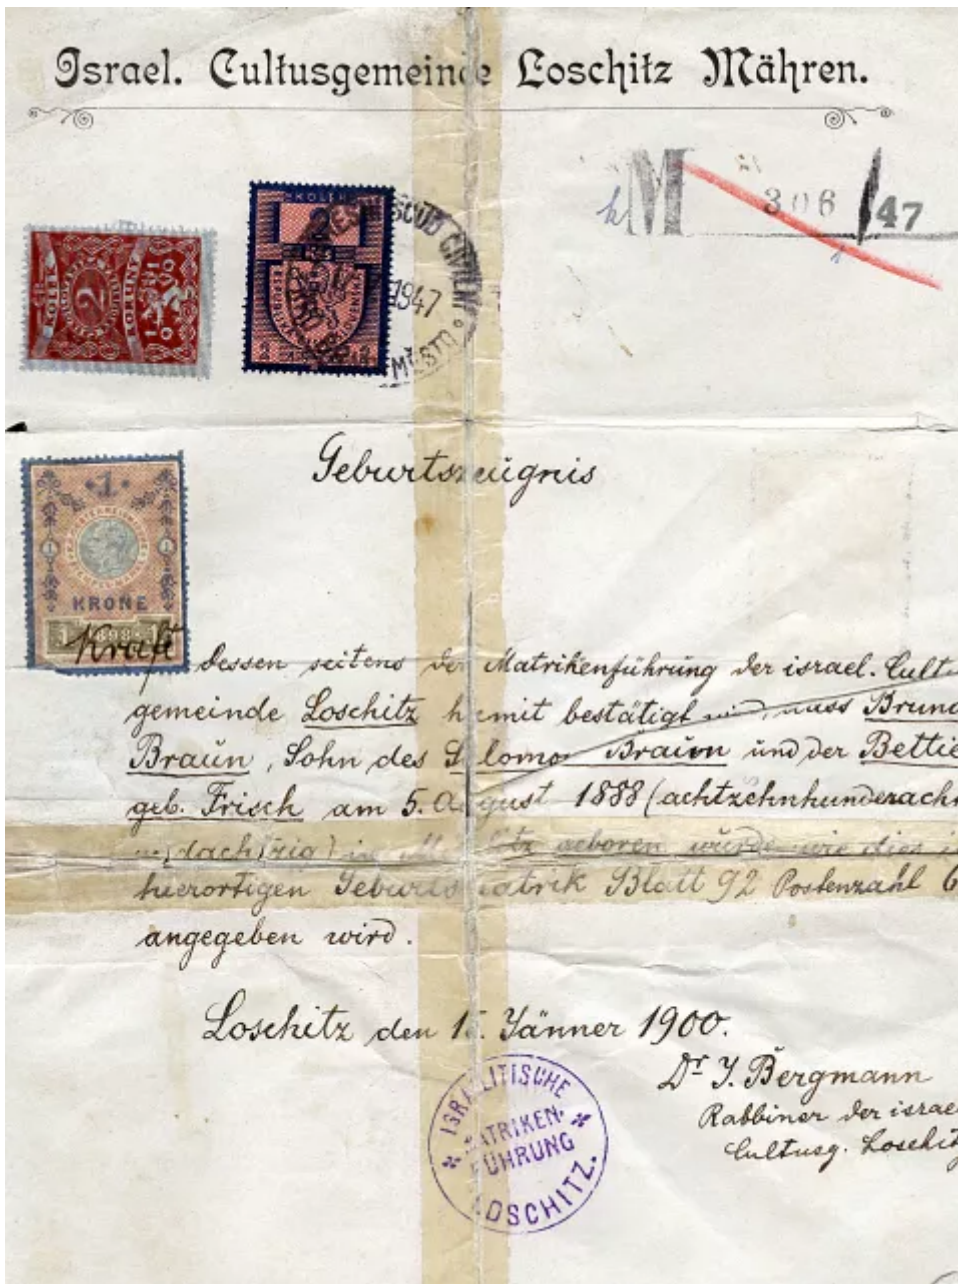 Israel. Cultusgemeinde Loschitz Mähren.
M 306/47
KOLEK
2
KORUNY
KOLEK
2
1947
MĚSTO
Geburtszeugnis
1
KRONE
1 1898 1
Kraft dessen seitens der Matrikenführung der israel. Cult
gemeinde Loschitz hiemit bestätigt wird, dass Bruno
Braun, Sohn des Salomon Braun und der Bettie
geb. Frisch am 5. August 1888 (achtzehnhunderacht
geboren wurde wie dies
hierortigen Geburtsmatrik Blatt 92 Postenzahl 6
angegeben wird.
Loschitz den 15. Jänner 1900.
Dr. J. Bergmann
Rabbiner der israel
Cultusg. Loschitz
ISRAELITISCHE
MATRIKEN-
FÜHRUNG
LOSCHITZ.